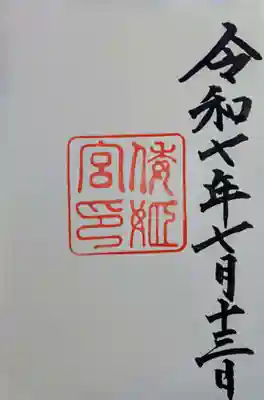 令和七年七月十三日
倭姫
宮印